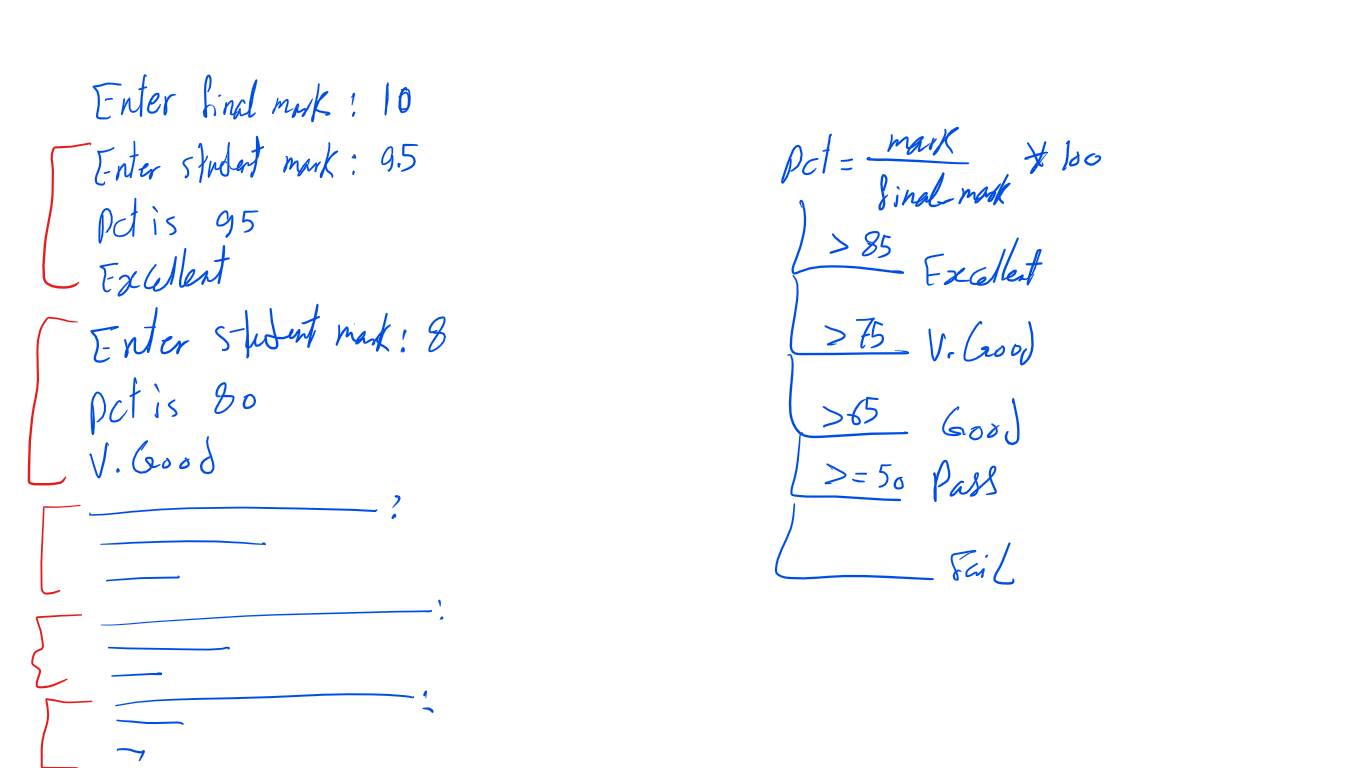 Enter final mark : 10
Enter student mark : 9.5
Pct is 95
Excellent
Enter student mark : 8
Pct is 80
V. Good
?
:
:
Pct = mark / final-mark * 100
> 85 Excellent
> 75 V. Good
> 65 Good
>= 50 Pass
Fail